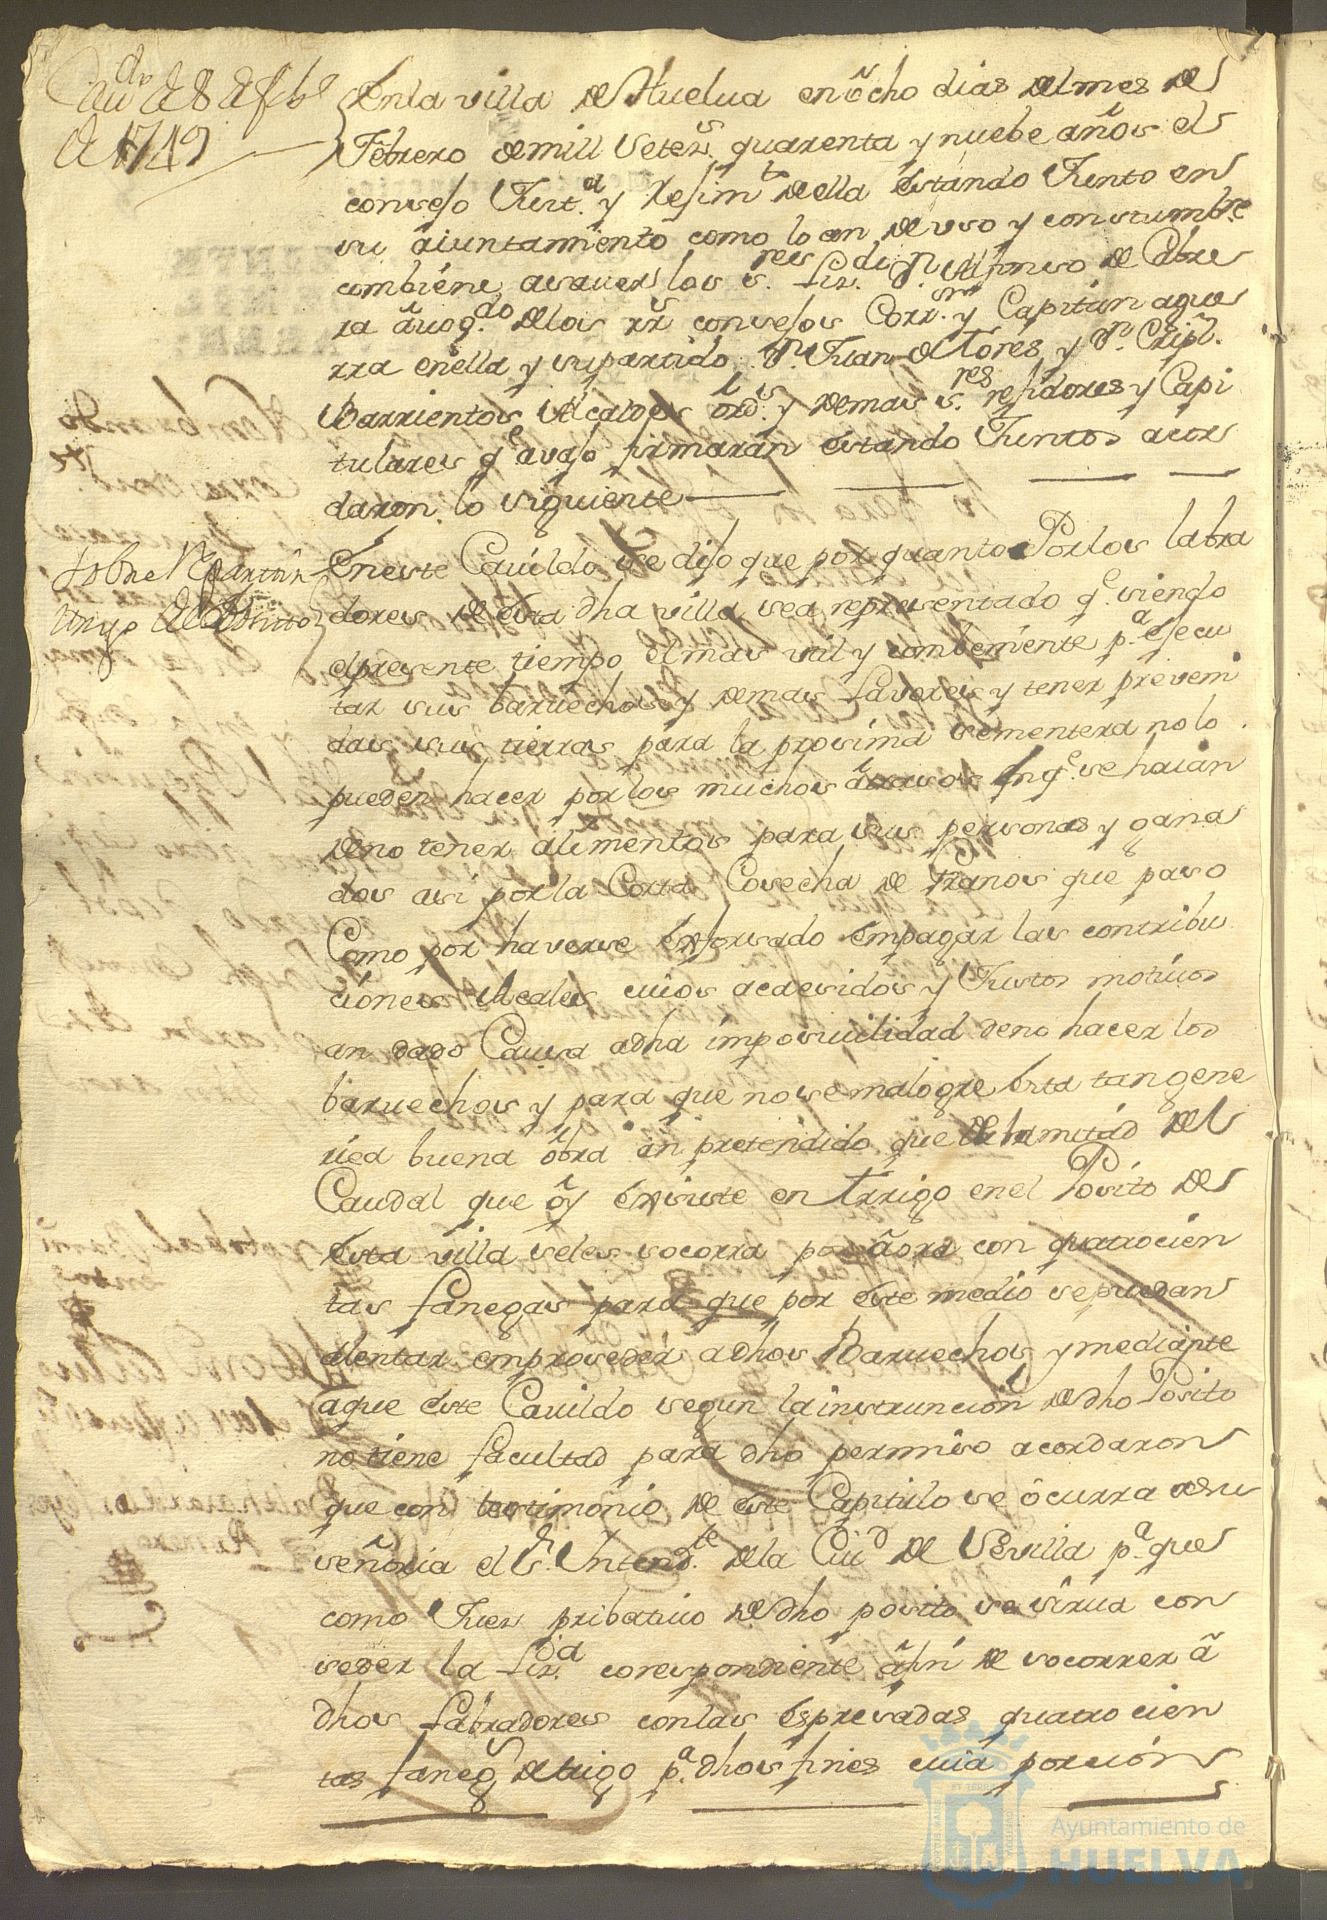 Cav.do de 8 de feb.o
de 1749
En la villa de Huelua en ôcho dias del mes de
Febrero de mill Seters. quarenta y nuebe años el
consejo Just.a y Rejim.to de ella estando Junto en
su aiuntamiento como lo an de uso y constumbre
combiene asauer los s.res liz.do D.n Alfonso de Cabre
ra auog.do de los rr.s consejos Corr.or y Capitan a gue
rra en ella y su partido D.n Juan de Tores y D.n Cripl.
Barrientos Alcaldes ord.s y demas s.res rejidores y Capi
tulares q.e auajo firmarán estando Juntos acor
daron lo siguiente
sobre Repartir
trigo del Posito
En este Cauildo se dijo que por quanto Por los labra
dores de esta dha villa se a representado q.e siendo
el presente tiempo el mas util y combeniente p.a ejecu
tar sus baruechos y demas lavores y tener preveni
das sus tierras para la prosima sementera no lo
pueden hacer por los muchos atrasos en q.e se haian
de no tener alimentos para sus personas y gana
dos asi por la Corta Cosecha de Granos que paso
Como por haverse esforsado em pagar las contribu
ciones Reales cuios acaesidos y Justos motivos
an dado Causa a dha imposiuilidad de no hacer los
baruechos y para que no se malogre esta tan gene
rica buena obra an pretendido que de la mitad del
Caudal que oy existe en trigo en el Posito de
esta villa se les socorra por aora con quatrocien
tas fanegas para que por este medio se puedan
alentar em proseder a dhos Baruechos y mediante
a que este Cauildo segun la instruncion de dho Posito
no tiene facultad para dho permiso acordaron
que con testimonio de este Capitulo se ôcurra a su
señoria el S.r Intend.te de la Ciu.d de Sevilla p.a que
como Juez pribatiuo de dho posito se sirua con
seder la liz.a corespondiente a fin de socorrer â
dhos labradores con las espresadas quatro cien
tas faneg.s de trigo p.a dhos fines cuia porcion
Ayuntamiento de
HUELVA